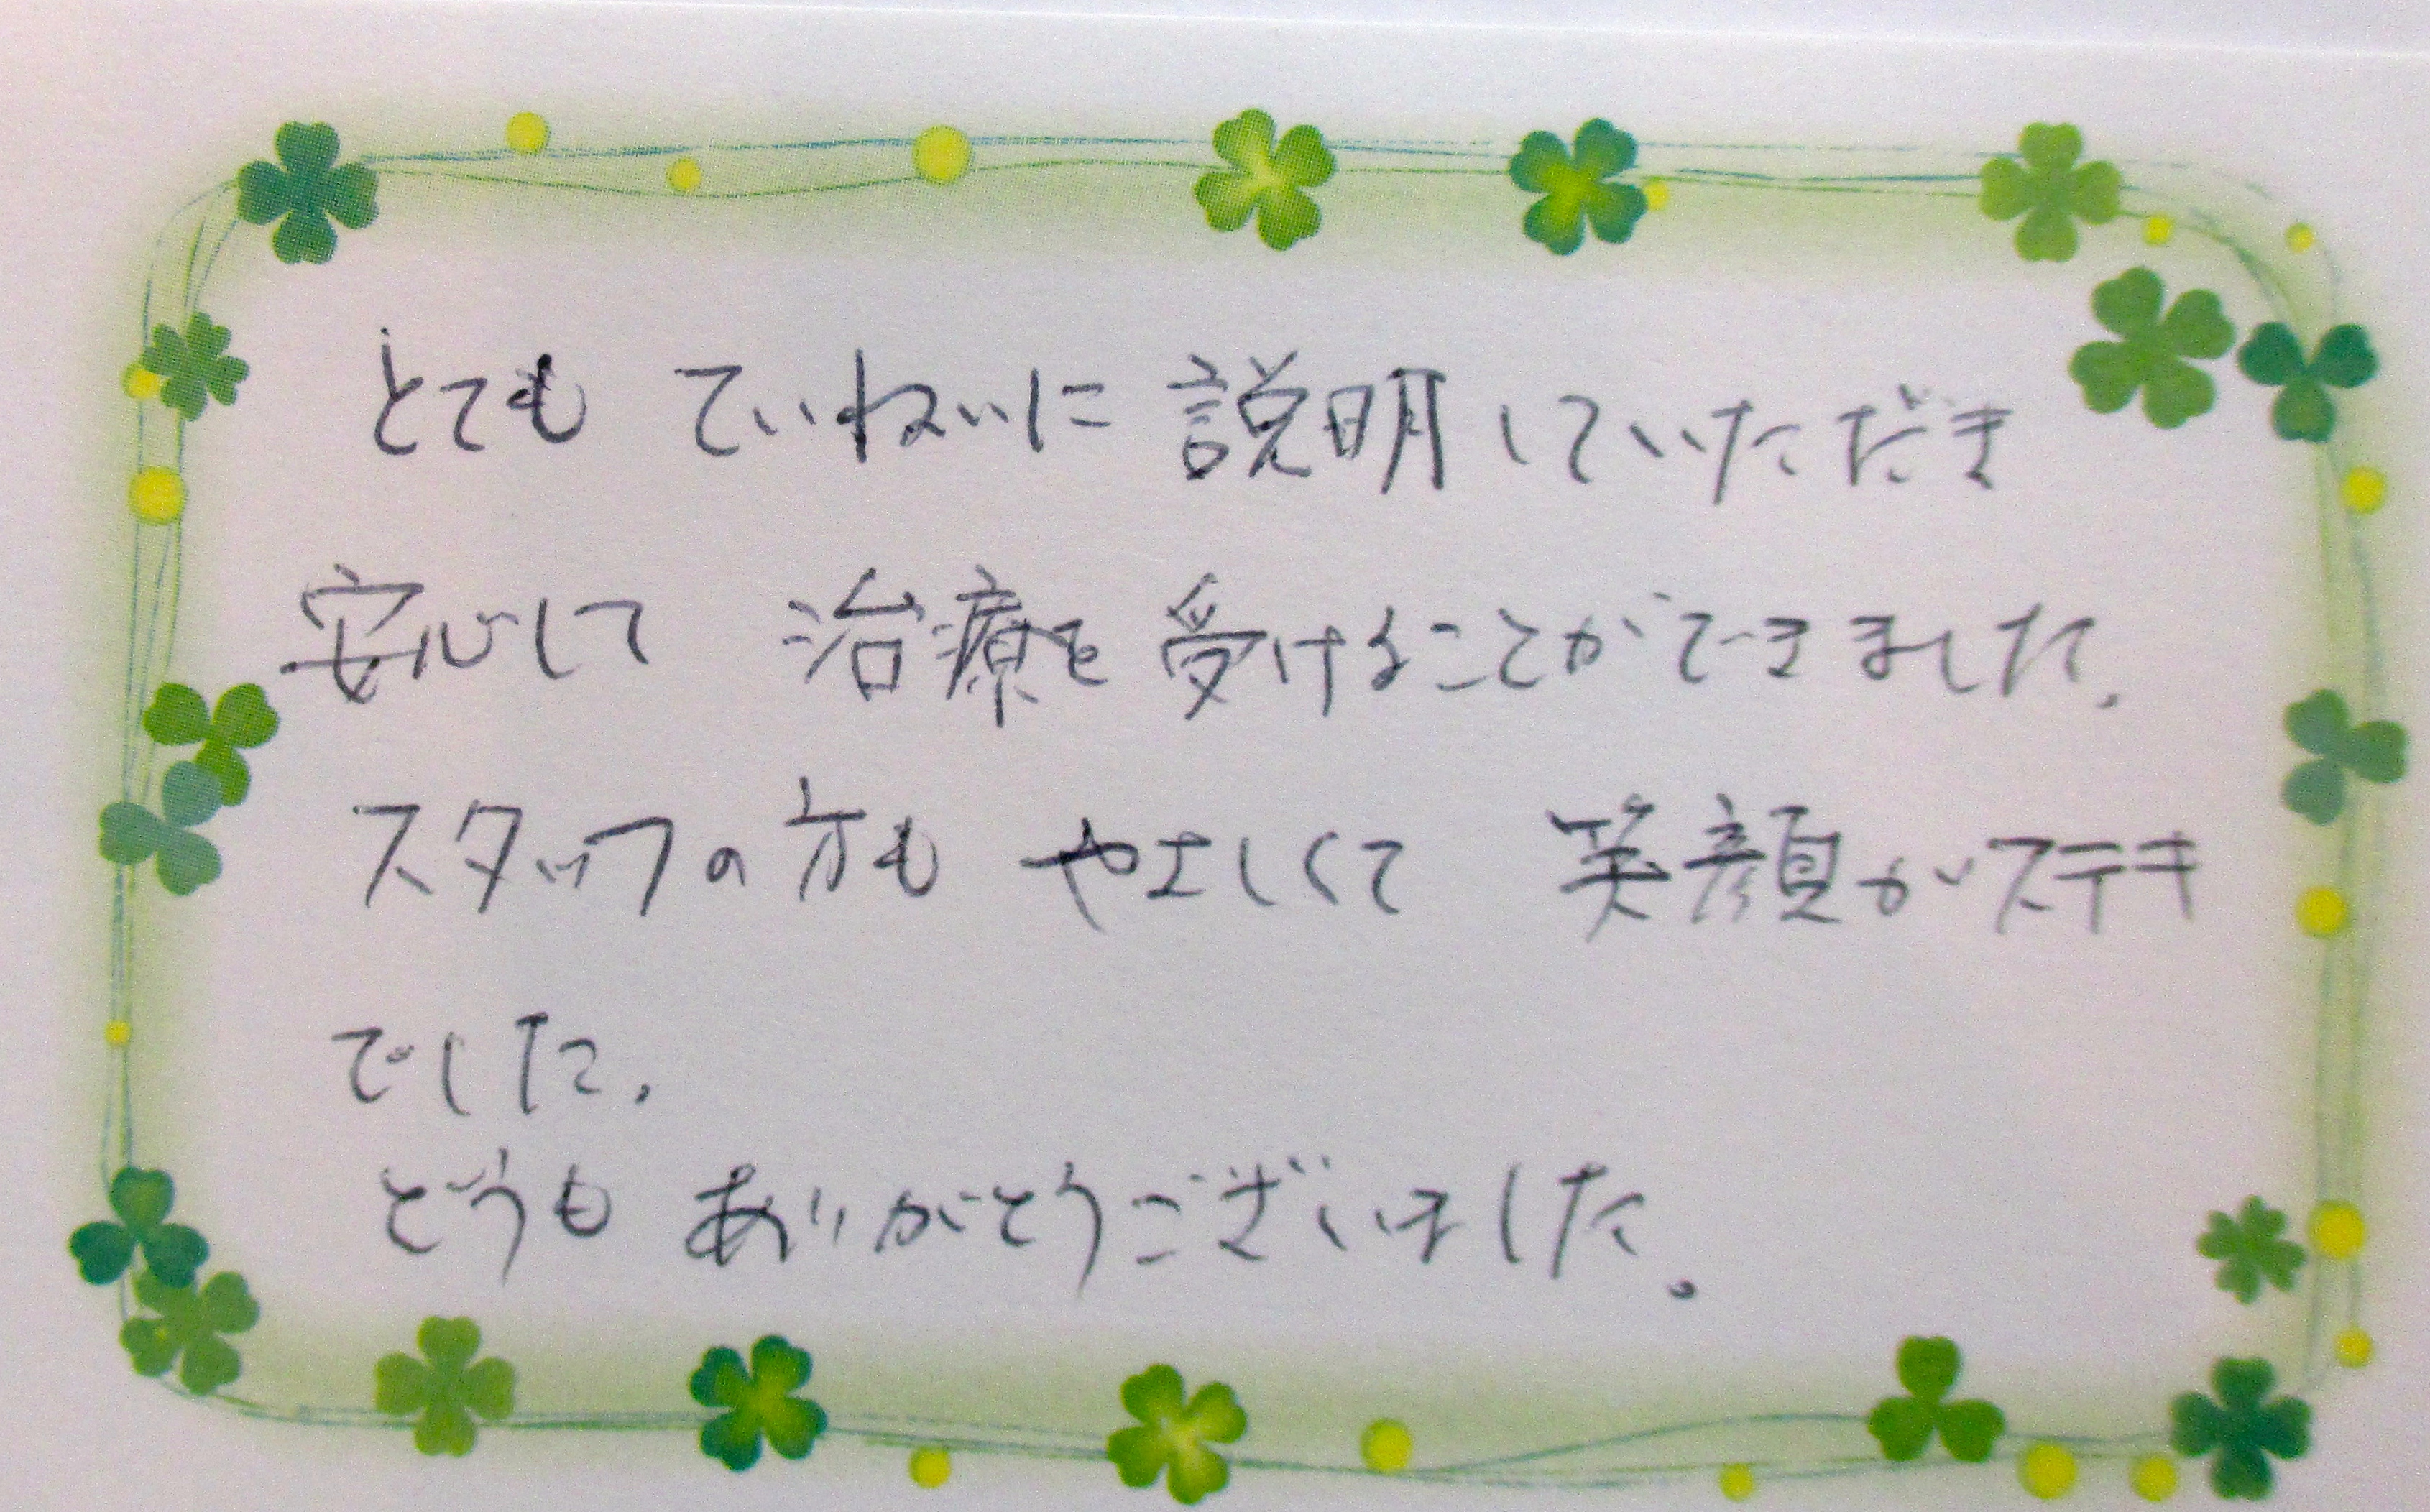 とても ていねいに 説明していただき
安心して 治療を 受けることができました。
スタッフの方も やさしくて 笑顔がステキ
でした。
どうも ありがとうございました。